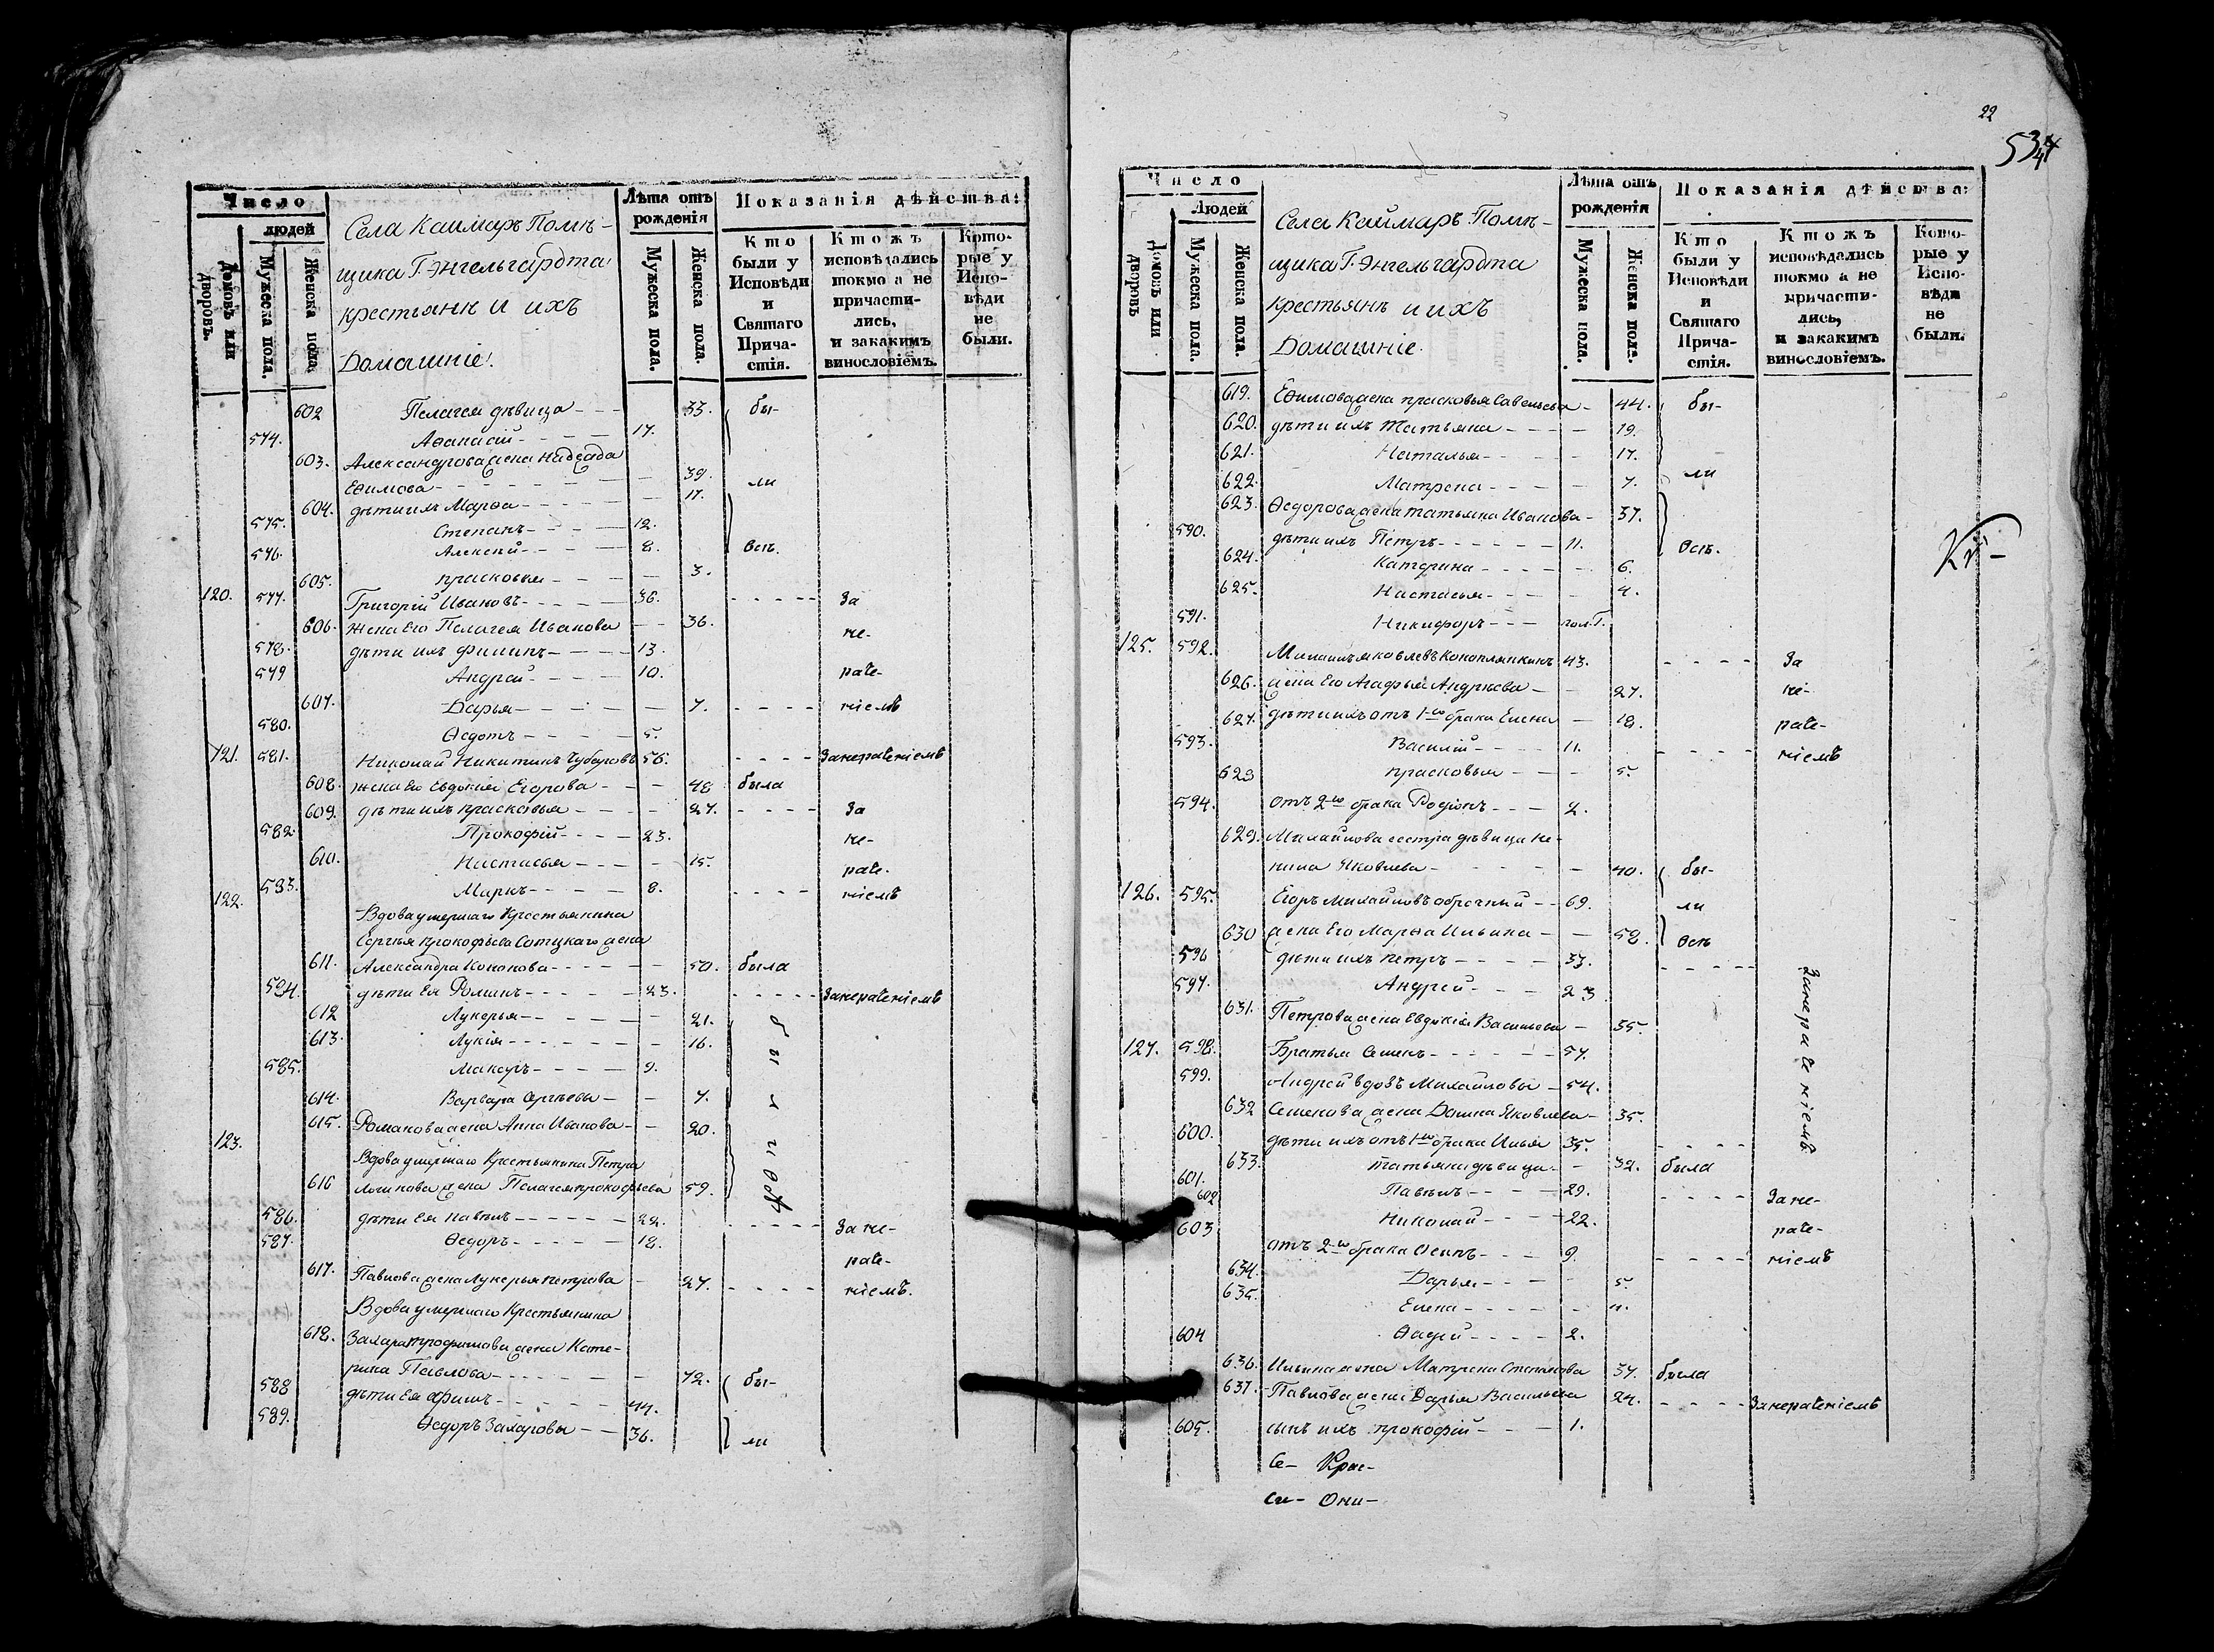 Число
людей
Домовъ или дворовъ.
Мужеска пола.
Женска пола.
Села Каимаръ Помѣ-
щика Г. Энгельгардта
крестьянѣ и ихъ
Домашніе.
Лѣта отъ рожденія
Мужеска пола.
Женска пола.
Показанія дѣйства:
Кто были у Исповѣди и Святаго Причастія.
Ктожъ исповѣдались токмо а не причастились, и закакимъ винословіемъ.
Которые у Исповѣди не были.
602 Пелагея дѣвица - - - 33. бы-
574. Аѳанасій - - - - 17.
603. Александрова жена Надежда
Ефимова - - - - - 39. ли
604. дѣти ихъ Марѳа - - - - 17.
575. Степанъ - - - - 12.
576. Алексѣй - - - - 8. всѣ.
605. прасковья - - - - 3.
120. 577. Григорій Ивановъ - - - - 36. - - - - За
606. жена Его Пелагея Иванова - - 36. не-
578. дѣти ихъ Филипъ - - - - 13.
579 Андрей - - - - 10. раче-
607. Дарья - - - - 7. - - - - ніемъ
580. Ѳедотъ - - - - 5.
121. 581. Николай Никитинъ Чубаровъ 56. - - - - Занераченіемъ
608. жена Ево Евдокія Егорова - - - 48 была
609. дѣти ихъ прасковья - - - - 27. - - - - За
582. Прокофій - - - - 23. не-
610. Настасья - - - - 15. раче-
583. Маркъ - - - - 8. - - - - ніемъ
122. Вдова умершаго Крестьянина
Сергѣя прокофьева Сотцкаго жена
611. Александра Кононова - - - - 50. была
584. дѣти Ея Романъ - - - - 23. - - - - Занераченіемъ
612 Лукерья - - - - 21.
613. Лукія - - - - 16.
585. Макаръ - - - - 9.
614. Варвара Сергѣевы - - 7.
615. Романова жена Анна Иванова - - 20.
123. Вдова умершаго Крестьянина Петра
616 Логинова жена Пелагея прокофьева 59.
586. дѣти Ея павелъ - - - - 22. - - - - За не-
587. Ѳедоръ - - - - 18.
раче-
617. Павлова жена Лукерья петрова - 27. - - - - ніемъ.
Вдова умершаго Крестьянина
618. Захара трофимова жена Кате-
рина Павлова - - - - 72. бы-
588 дѣти Ея Ефимъ - - - - 44.
589. Ѳедоръ Захаровы - - 36. ли
22
534
Число
Людей
Домовъ или дворовъ
Мужеска пола.
Женска пола.
Села Каймаръ Помѣ-
щика Г. Энгельгардта
крестьянѣ и ихъ
Домашніе.
Лѣта отъ рожденія
Мужеска пола.
Женска пола.
Показанія дѣйства:
Кто были у Исповѣди и Святаго Причастія.
Ктожъ исповѣдались токмо а не причастились, и закакимъ винословіемъ.
Которые у Исповѣди не были.
619. Ефимова жена прасковья Савельева - 44. бы-
620. дѣти ихъ Татьяна - - - - 19.
621. Наталья - - - - 17.
622. Матрена - - - - 7. ли
623. Ѳедорова жена татьяна Иванова - 37.
590. дѣти ихъ Петръ - - - - 11. всѣ.
624. Катерина - - - - 6.
625. Настасья - - - - 4.
591. Никифоръ - - - пол. Г.
125. 592. Михаилъ яковлевъ Коноплянкинъ 43. - - - - За
626. жена Его Агафья Андрѣева - - 27. не-
627. дѣти ихъ отъ 1го брака Елена - 18. раче-
593. Василій - - - - 11. - - - - ніемъ
628 прасковья - - - 5.
594. отъ 2го брака Родіонъ - - - 2.
629. Михайлова сестра дѣвица не-
нила Яковлева - - - 40. бы-
126. 595. Егоръ Михайловъ оброчный - - 69. ли
630 жена Его Марѳа Ильина - - 58. всѣ
596 дѣти ихъ петръ - - - - 33. - - - -
597. Андрей - - - 23
631. Петрова жена Евдокія Васильева - 35.
Занераченіемъ
127. 598. Братья Семенъ - - - - 57.
599. Андрей вдовъ Михайловы - 54.
632 Семенова жена Домна Яковлева - 35.
600. дѣти ихъ отъ 1го брака Илья 35. - - - -
633. татьяна дѣвица - - 32. была
601. Павелъ - - - - 29. - - - - За не-
602 Николай - - - 22. раче-
603 отъ 2го брака Осипъ - - - 9. - - - - ніемъ
634. Дарья - - - - 5.
635. Елена - - - -
604 Ѳадей - - - - 2.
636. Ильина жена Матрена Степанова 37. была
637. Павлова жена Дарья Васильева 24. - - - - Занераченіемъ
605. сынъ ихъ прокофій - - - 1.